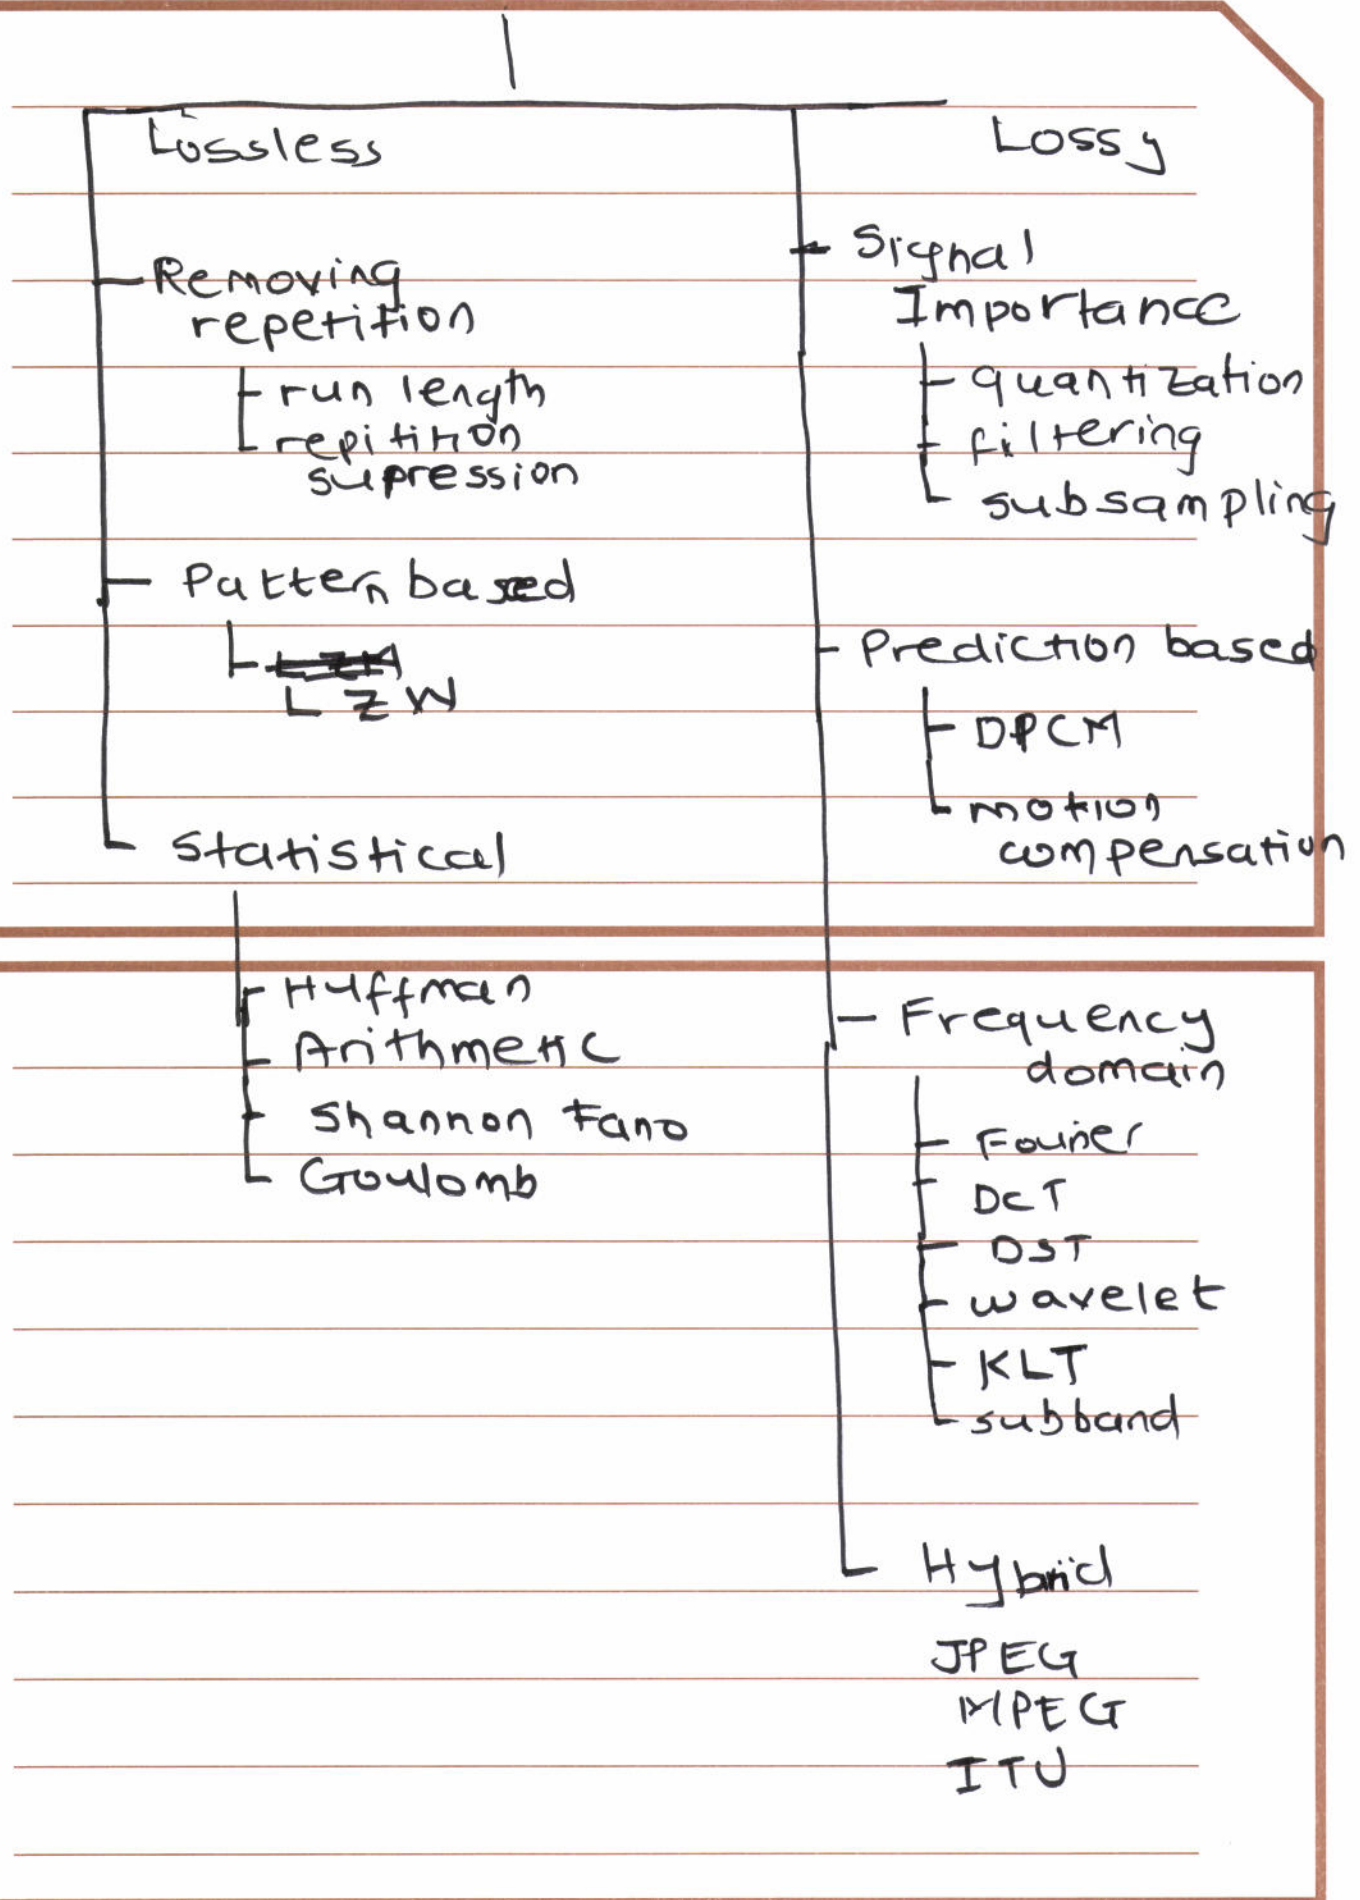 Lossless
Removing
repetition
run length
repitition
supression
Pattern based
LZW
Statistical
Huffman
Arithmetic
Shannon Fano
Goulomb
Lossy
Signal
Importance
quantization
filtering
subsampling
Prediction based
DPCM
motion
compensation
Frequency
domain
Fourier
DCT
DST
wavelet
KLT
subband
Hybrid
JPEG
MPEG
ITU